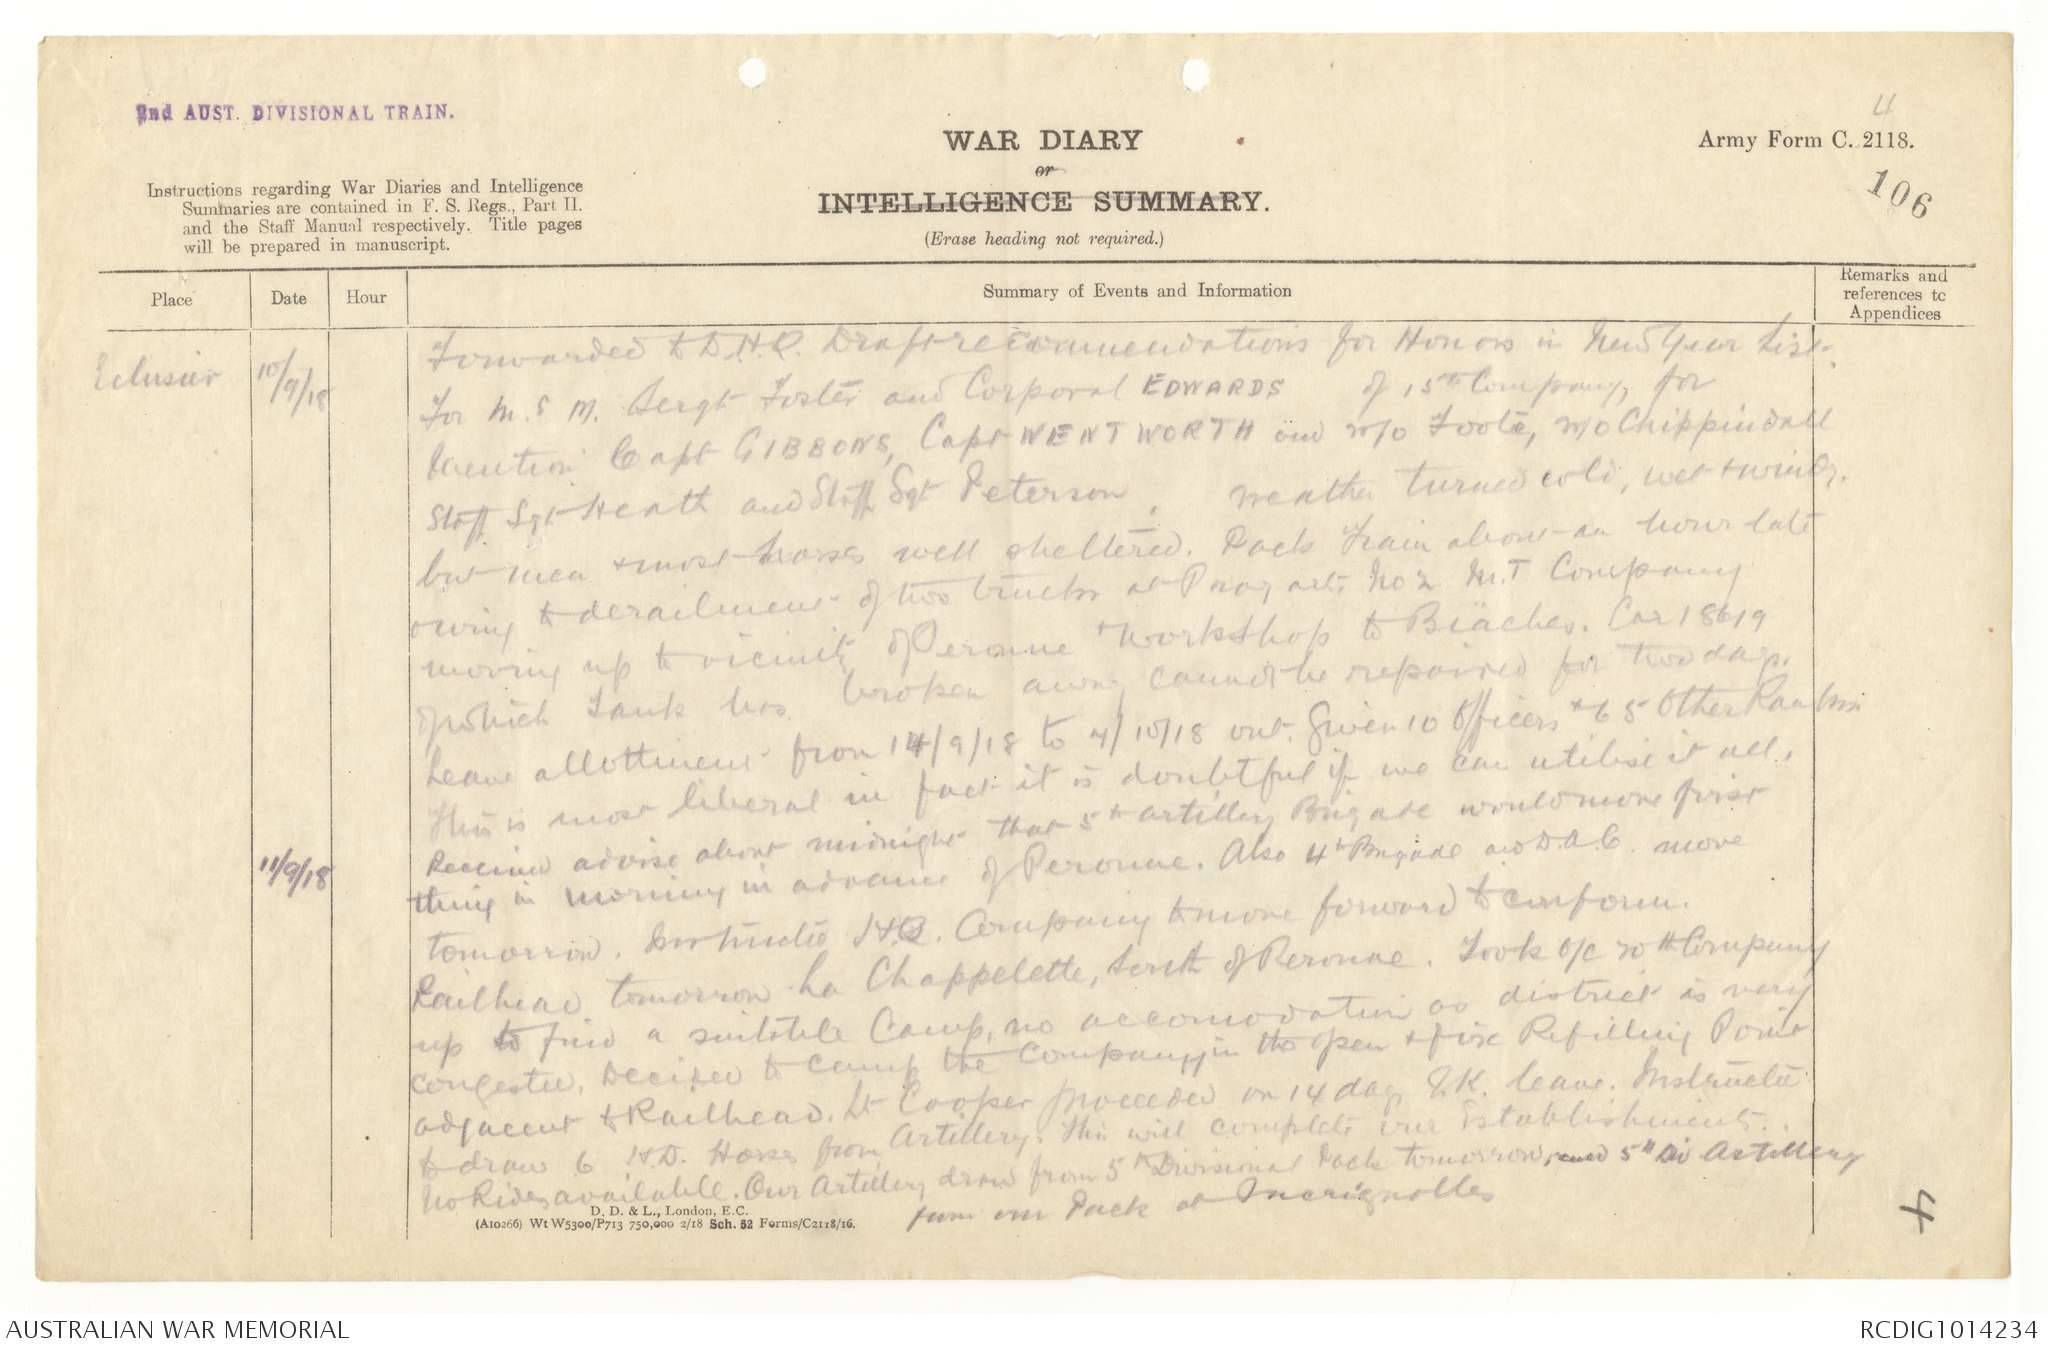 2nd AUST. DIVISIONAL TRAIN.
4
WAR DIARY
or
INTELLIGENCE SUMMARY.
(Erase heading not required.)
Army Form C. 2118.
106
Instructions regarding War Diaries and Intelligence
Summaries are contained in F. S. Regs., Part II.
and the Staff Manual respectively. Title pages
will be prepared in manuscript.
Place Date Hour Summary of Events and Information Remarks and references to Appendices
Eclusier 10/9/18 Forwarded to D.H.Q. Draft recommendations for Honors in New Year List.
For M.S.M. Sergt Foster and Corporal EDWARDS of 15th Company, for
Mention Capt GIBBONS, Capt WENTWORTH and W/O Foote, W/O Chippindall
Staff Sgt Heath and Staff Sgt Peterson. Weather turned cold, wet & windy.
but men & most horses well sheltered. Pack Train about an hour late
owing to derailment of two trucks at No 2 M.T Company
moving up to vicinity of Peronne & Workshop to Biaches. Car 18619
of which Tank has broken away cannot be repaired for two days.
Leave allotment from 14/9/18 to 4/10/18 Given 10 Officers & 65 Other Ranks
This is most liberal in fact it is doubtful if we can utilise it all.
11/9/18 Received advise about midnight that 5th Artillery Brigade would move first
thing in morning in advance of Peronne. Also 4th Brigade and D.A.C. move
tomorrow. Instructed H.Q. Company to move forward to conform.
Railhead tomorrow La Chappelette, South of Peronne. Took O/C 20th Company
up to find a suitable Camp, no accomodation as district is very
congested. Decided to camp the Company in the open & fix Refilling Point
adjacent to Railhead. Lt Cooper proceeded on 14 days U.K. leave. Instructed
to draw 6 H.D. Horses from Artillery. This will complete our Establishment.
No Rides available. Our Artillery draw from 5th Divisional Pack tomorrow, 5th Div Artillery
from our Pack at
D. D. & L., London, E.C.
(A10266) Wt W5300/P713 750,000 2/18 Sch. 52 Forms/C2118/16.
4
AUSTRALIAN WAR MEMORIAL
RCDIG1014234